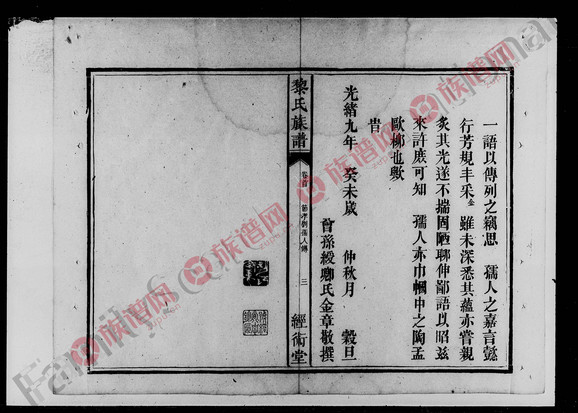 一語以傳列之竊思　孺人之嘉言懿
行芳規丰采　雖未深悉其蘊亦嘗親
炙其光遂不揣固陋聊伸鄙語以昭茲
來許庶可知　孺人亦巾幗中之陶孟
歐柳也歟
旹
光緒九年　癸未歲　仲秋月　穀旦
曾孫綬卿氏金章敬撰
黎氏族譜
卷首　節孝劉孺人傳　三
經術堂
族谱网